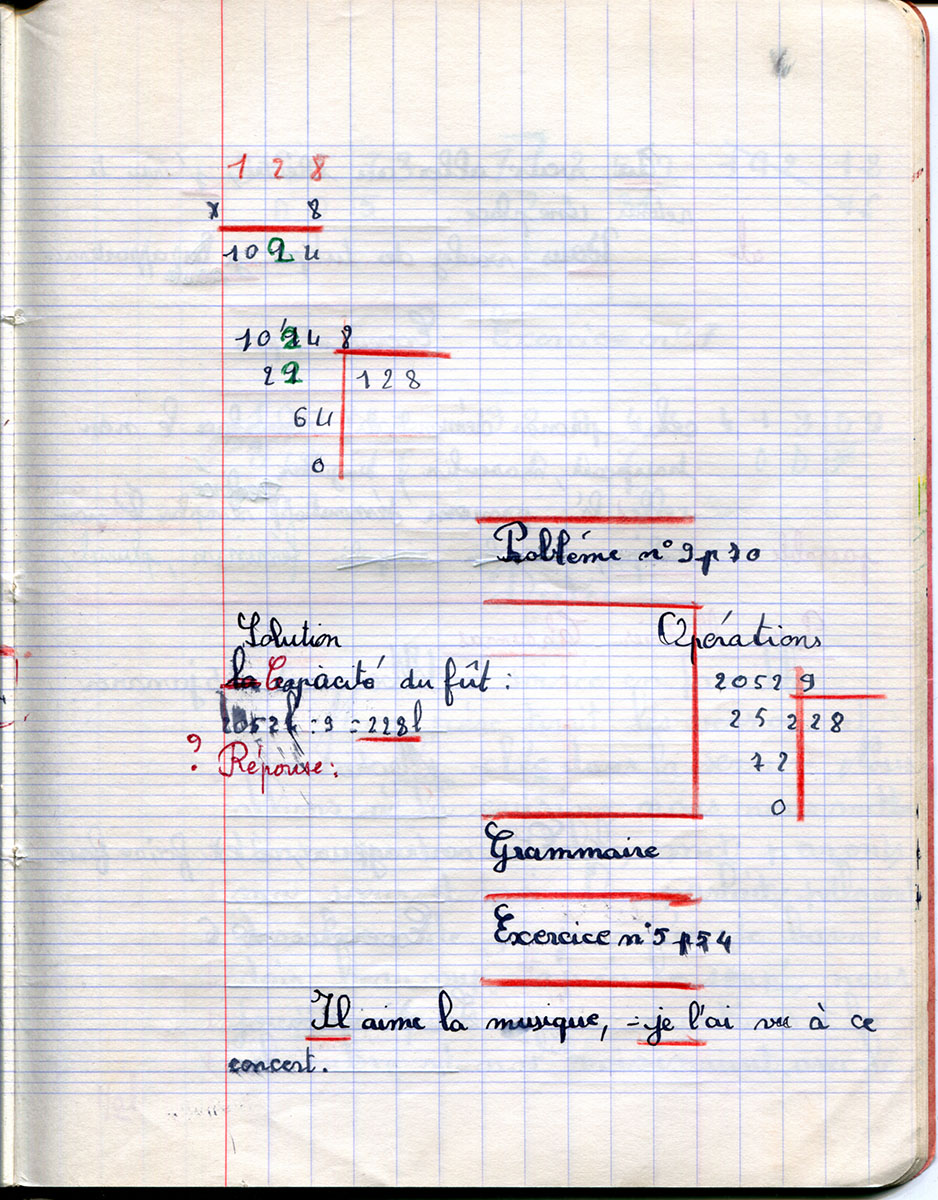 128
x 8
1024
1024 8
22 128
64
0
Probléme n° 9 p 70
Solution Opérations
la Capacité du fût :
2052l : 9 = 228l
? Réponse :
2052 9
252 228
72
0
Grammaire
Exercice n°5 p 54
Il aime la musique, - je l'ai vu à ce
concert.